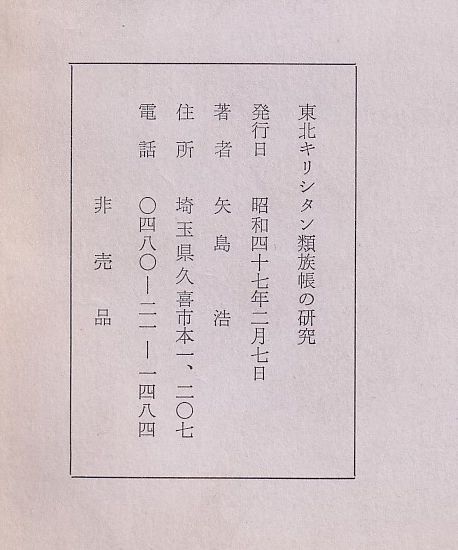 東北キリシタン類族帳の研究
発行日 昭和四十七年二月七日
著者 矢島浩
住所 埼玉県久喜市本一、二〇七
電話 〇四八〇―二一―一四八四
非売品